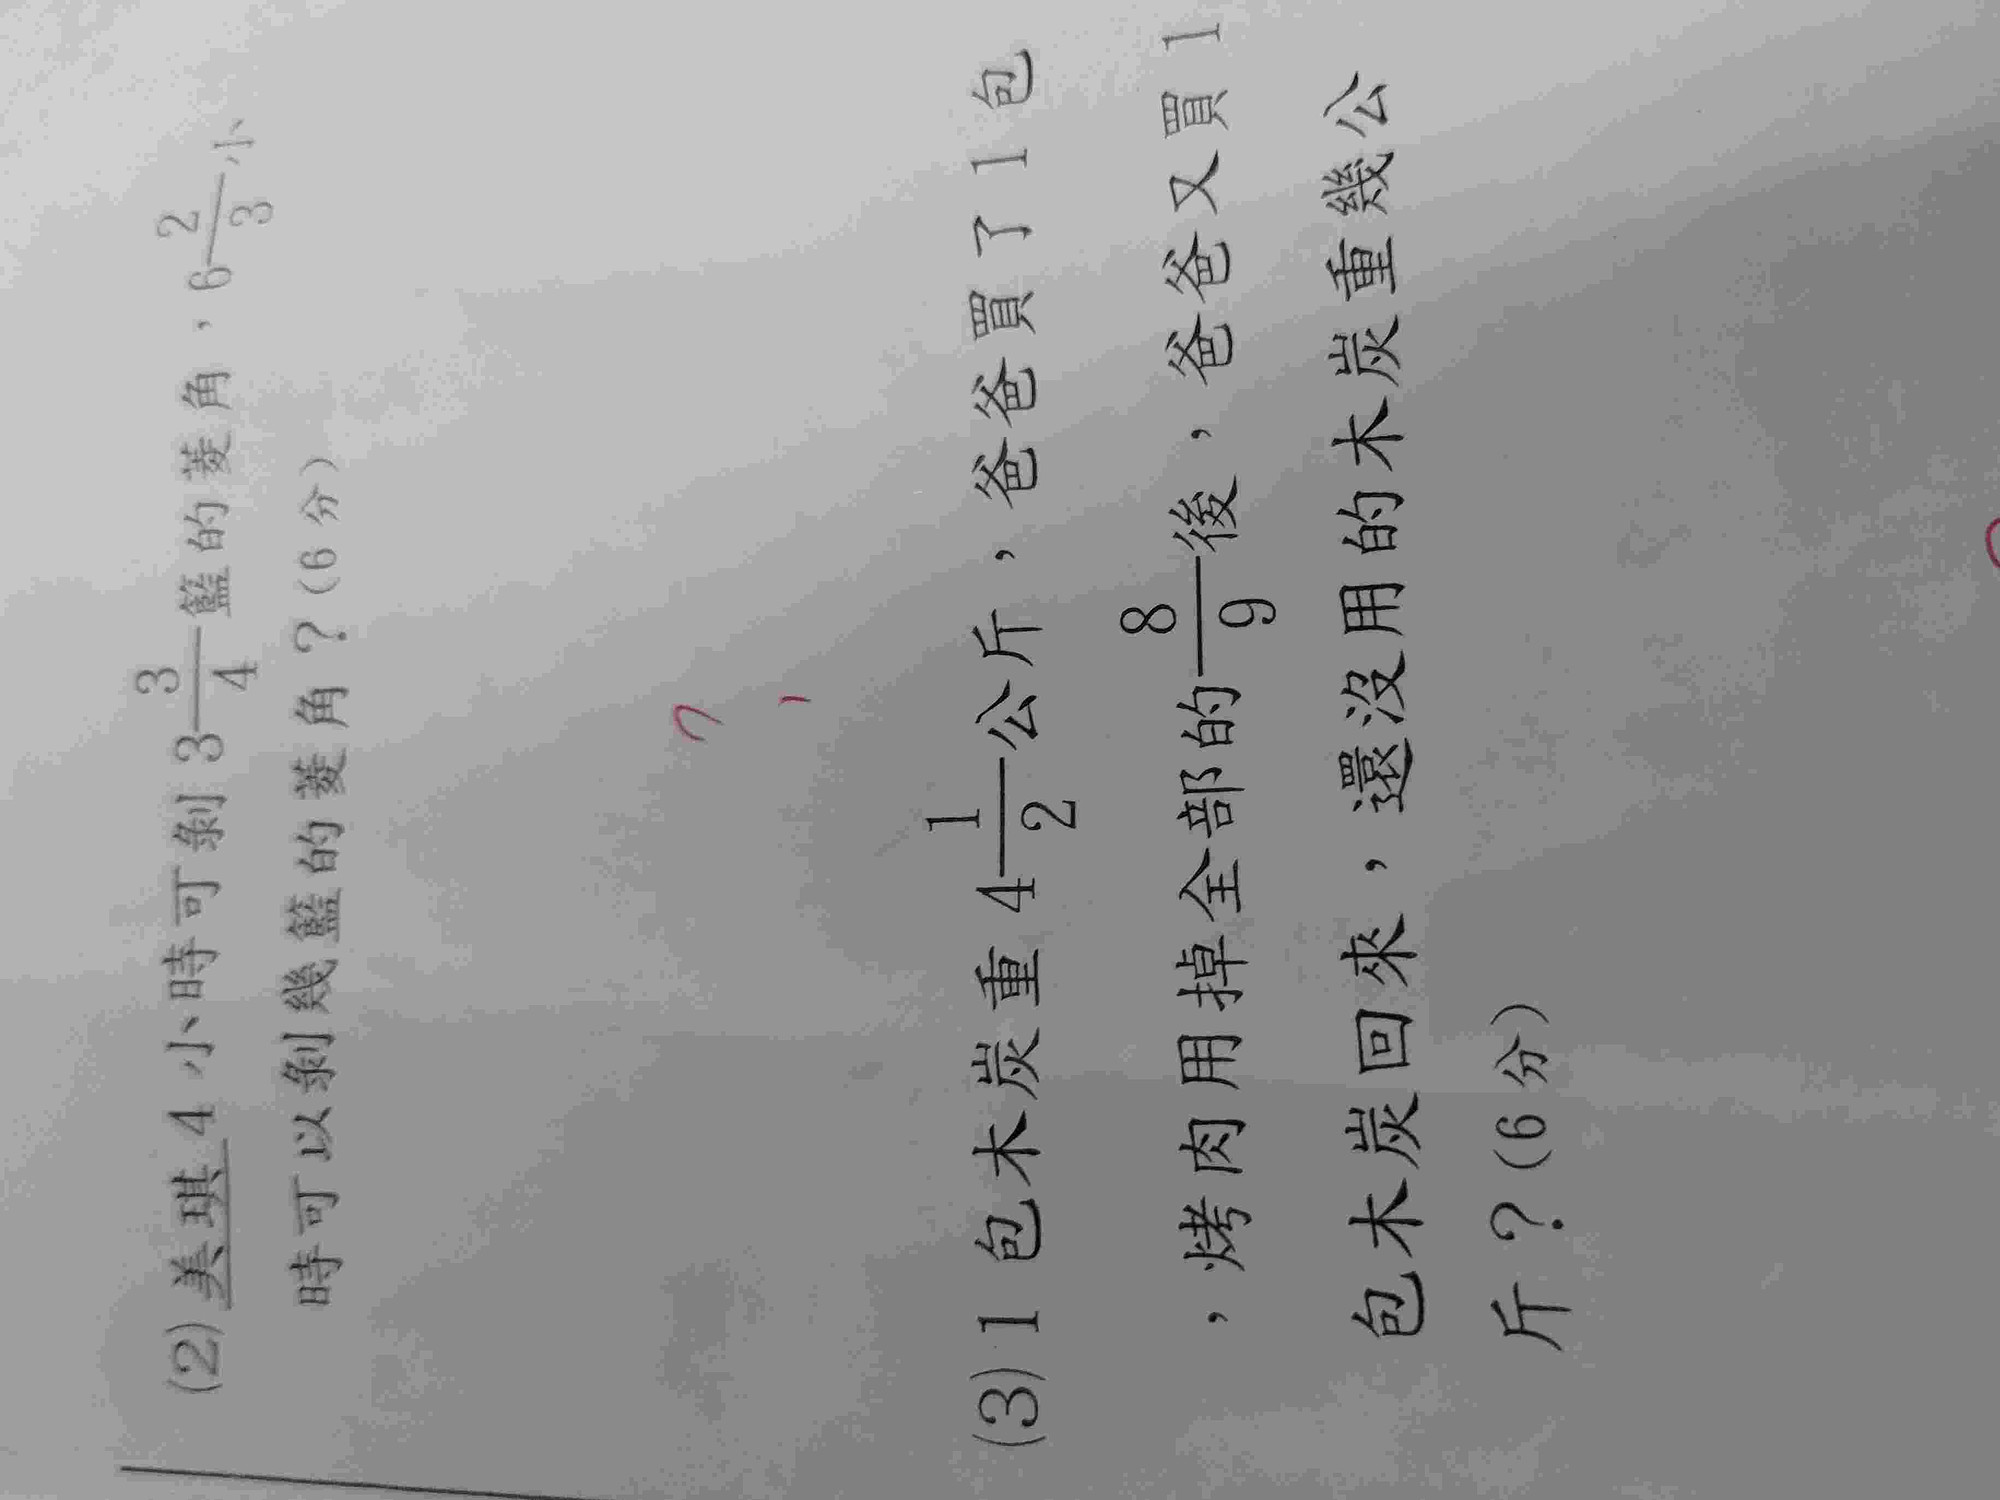 (2) 美琪 4 小時可剝 3 3/4 籃的菱角，6 2/3 小
時可以剝幾籃的菱角？(6 分)
(3) 1 包木炭重 4 1/2 公斤，爸爸買了 1 包
，烤肉用掉全部的 8/9 後，爸爸又買 1
包木炭回來，還沒用的木炭重幾公
斤？(6 分)